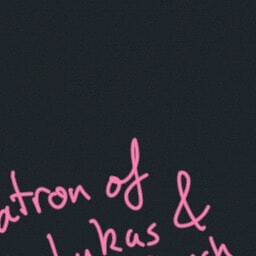 atron of
ukas &